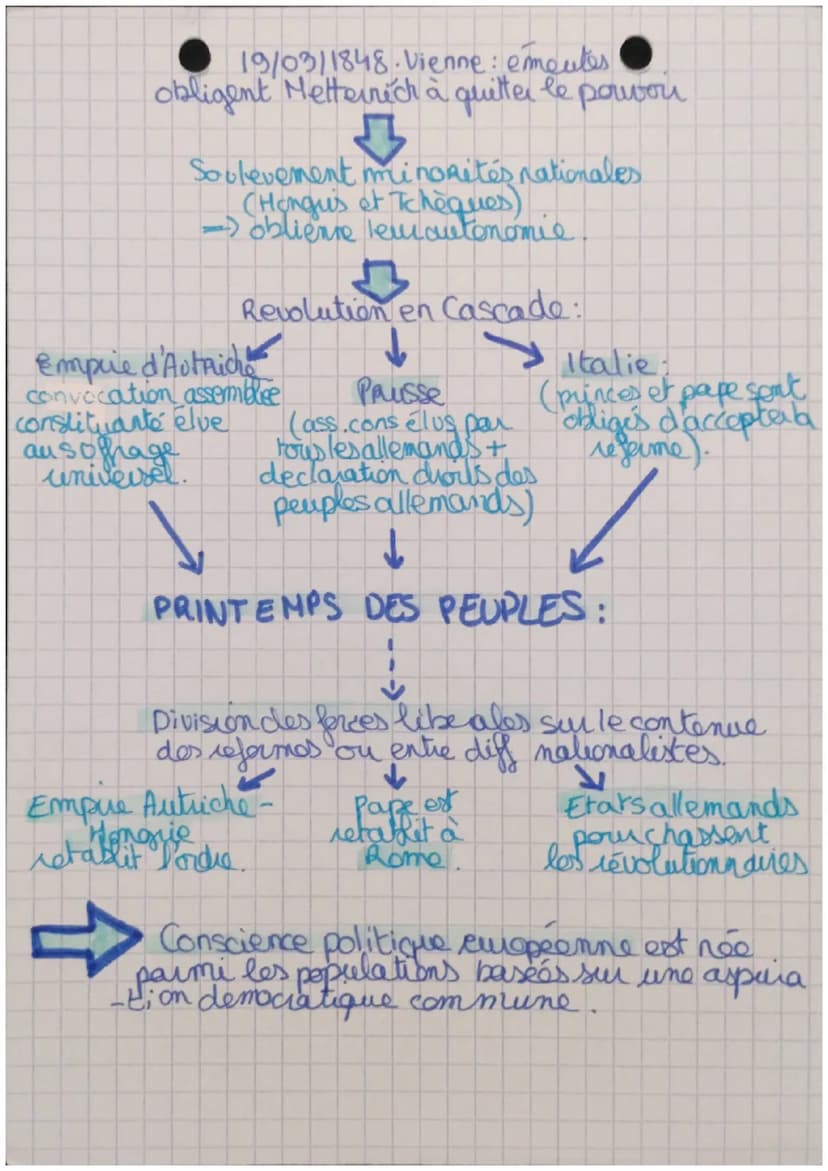 19/03/1848. Vienne : émeutes
obligent Metternich à quitter le pouvoir
Soulevement minorités nationales
(Hongrois et Tchèques)
→ obtienne leur autonomie.
Revolution en Cascade :
Empire d'Autriche
convocation assemblée
constituante élue
au sofrage
universel.
Prusse
(ass. cons élus par
tous les allemands +
declaration droits des
peuples allemands)
Italie :
(princes et pape sont
obligés d'accepter la
reforme).
PRINTEMPS DES PEUPLES :
Division des forces liberales sur le contenue
des reformes ou entre diff nationalistes.
Empire Autriche-
Hongrie
retablit l'ordre.
Pape est
retablit à
Rome.
Etats allemands
pourchassent
les révolutionnaires
Conscience politique européenne est née
parmi les populations basées sur une aspira
-tion democratique commune.